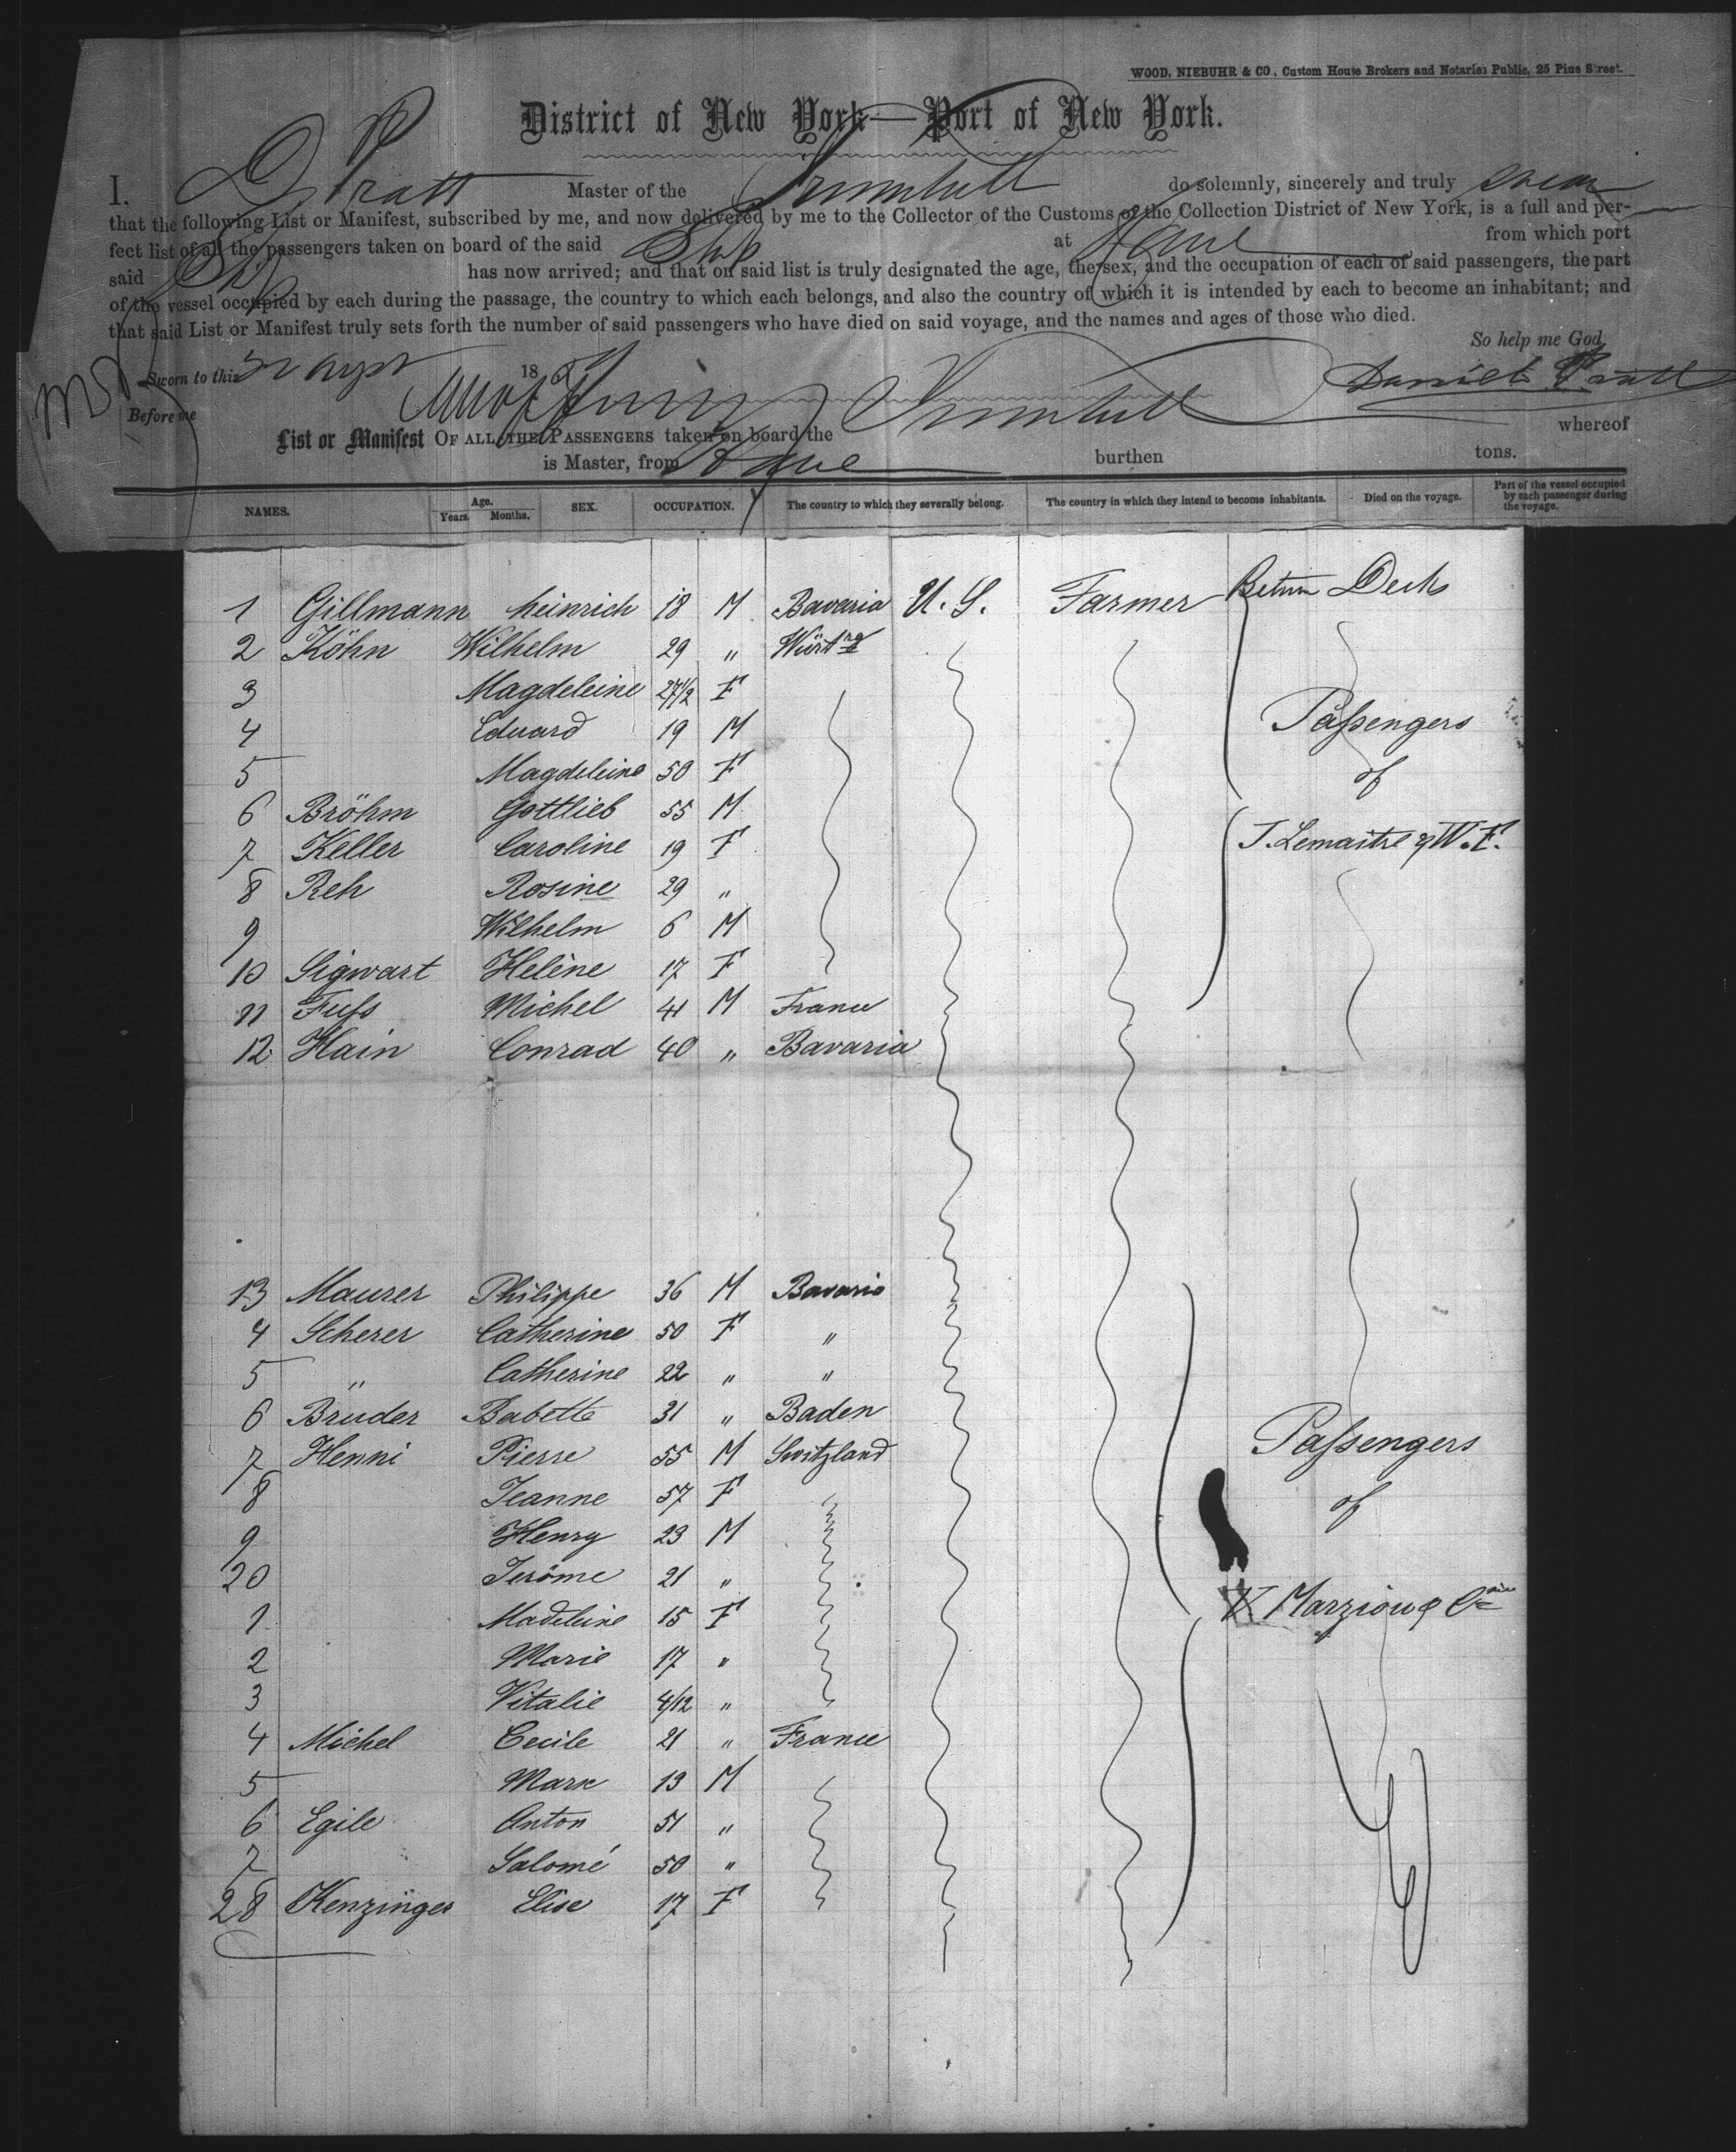 WOOD, NIEBUHR & CO, Custom House Brokers and Notaries Public, 25 Pine Street.
District of New York—Port of New York.
I. D Pratt Master of the Trumbull do solemnly, sincerely and truly swear
that the following List or Manifest, subscribed by me, and now delivered by me to the Collector of the Customs of the Collection District of New York, is a full and per-
fect list of all the passengers taken on board of the said Ship at Havre from which port
said Ship has now arrived; and that on said list is truly designated the age, the sex, and the occupation of each of said passengers, the part
of the vessel occupied by each during the passage, the country to which each belongs, and also the country of which it is intended by each to become an inhabitant; and
that said List or Manifest truly sets forth the number of said passengers who have died on said voyage, and the names and ages of those who died.
So help me God.
Sworn to this 186
Before me Daniel Pratt
List or Manifest OF ALL THE PASSENGERS taken on board the Trumbull whereof
is Master, from Havre burthen tons.
NAMES. Age. Years. Months. SEX. OCCUPATION. The country to which they severally belong. The country in which they intend to become inhabitants. Died on the voyage. Part of the vessel occupied by each passenger during the voyage.
1 Gillmann heinrich 18 M Bavaria U. S. Farmer Betwn Decks
2 Köhn Wilhelm 29 " Würtrg
3 Magdeleine 27½ F
4 Eduard 19 M Passengers
5 Magdeleine 50 F of
6 Bröhm Gottlieb 55 M
7 Keller Caroline 19 F J. Lemaitre & W. F.
8 Reh Rosine 29 "
9 Wilhelm 6 M
10 Sigwart Helène 17 F
11 Fuſs Michel 41 M France
12 Hain Conrad 40 " Bavaria
13 Maurer Philippe 36 M Bavaria
4 Scherer Catherine 50 F "
5 " Catherine 22 " "
6 Bruder Babette 31 " Baden
7 Henni Pierre 55 M Switzland Paſsengers
8 Jeanne 57 F of
9 Henry 23 M
20 Jerôme 21 "
1 Madeleine 15 F Marziou & Cie
2 Marie 17 "
3 Vitalie 4/12 "
4 Michel Cecile 21 " France
5 Marc 13 M
6 Egile Anton 51 "
7 Salomé 50 "
28 Kenzinger Elise 17 F